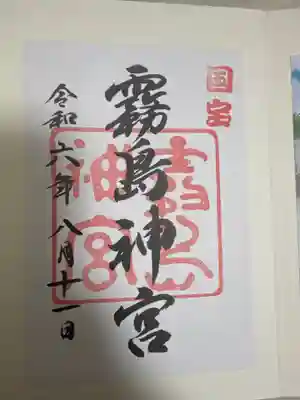 国宝
霧島神宮
令和六年八月十一日
霧島
神宮